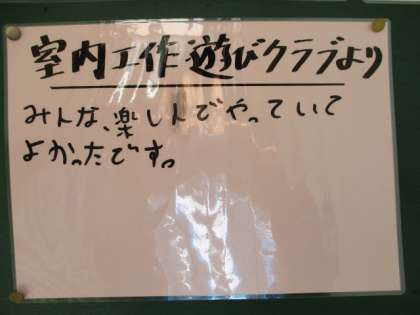 室内工作遊びクラブより
みんな、楽しんでやっていて
よかったです。